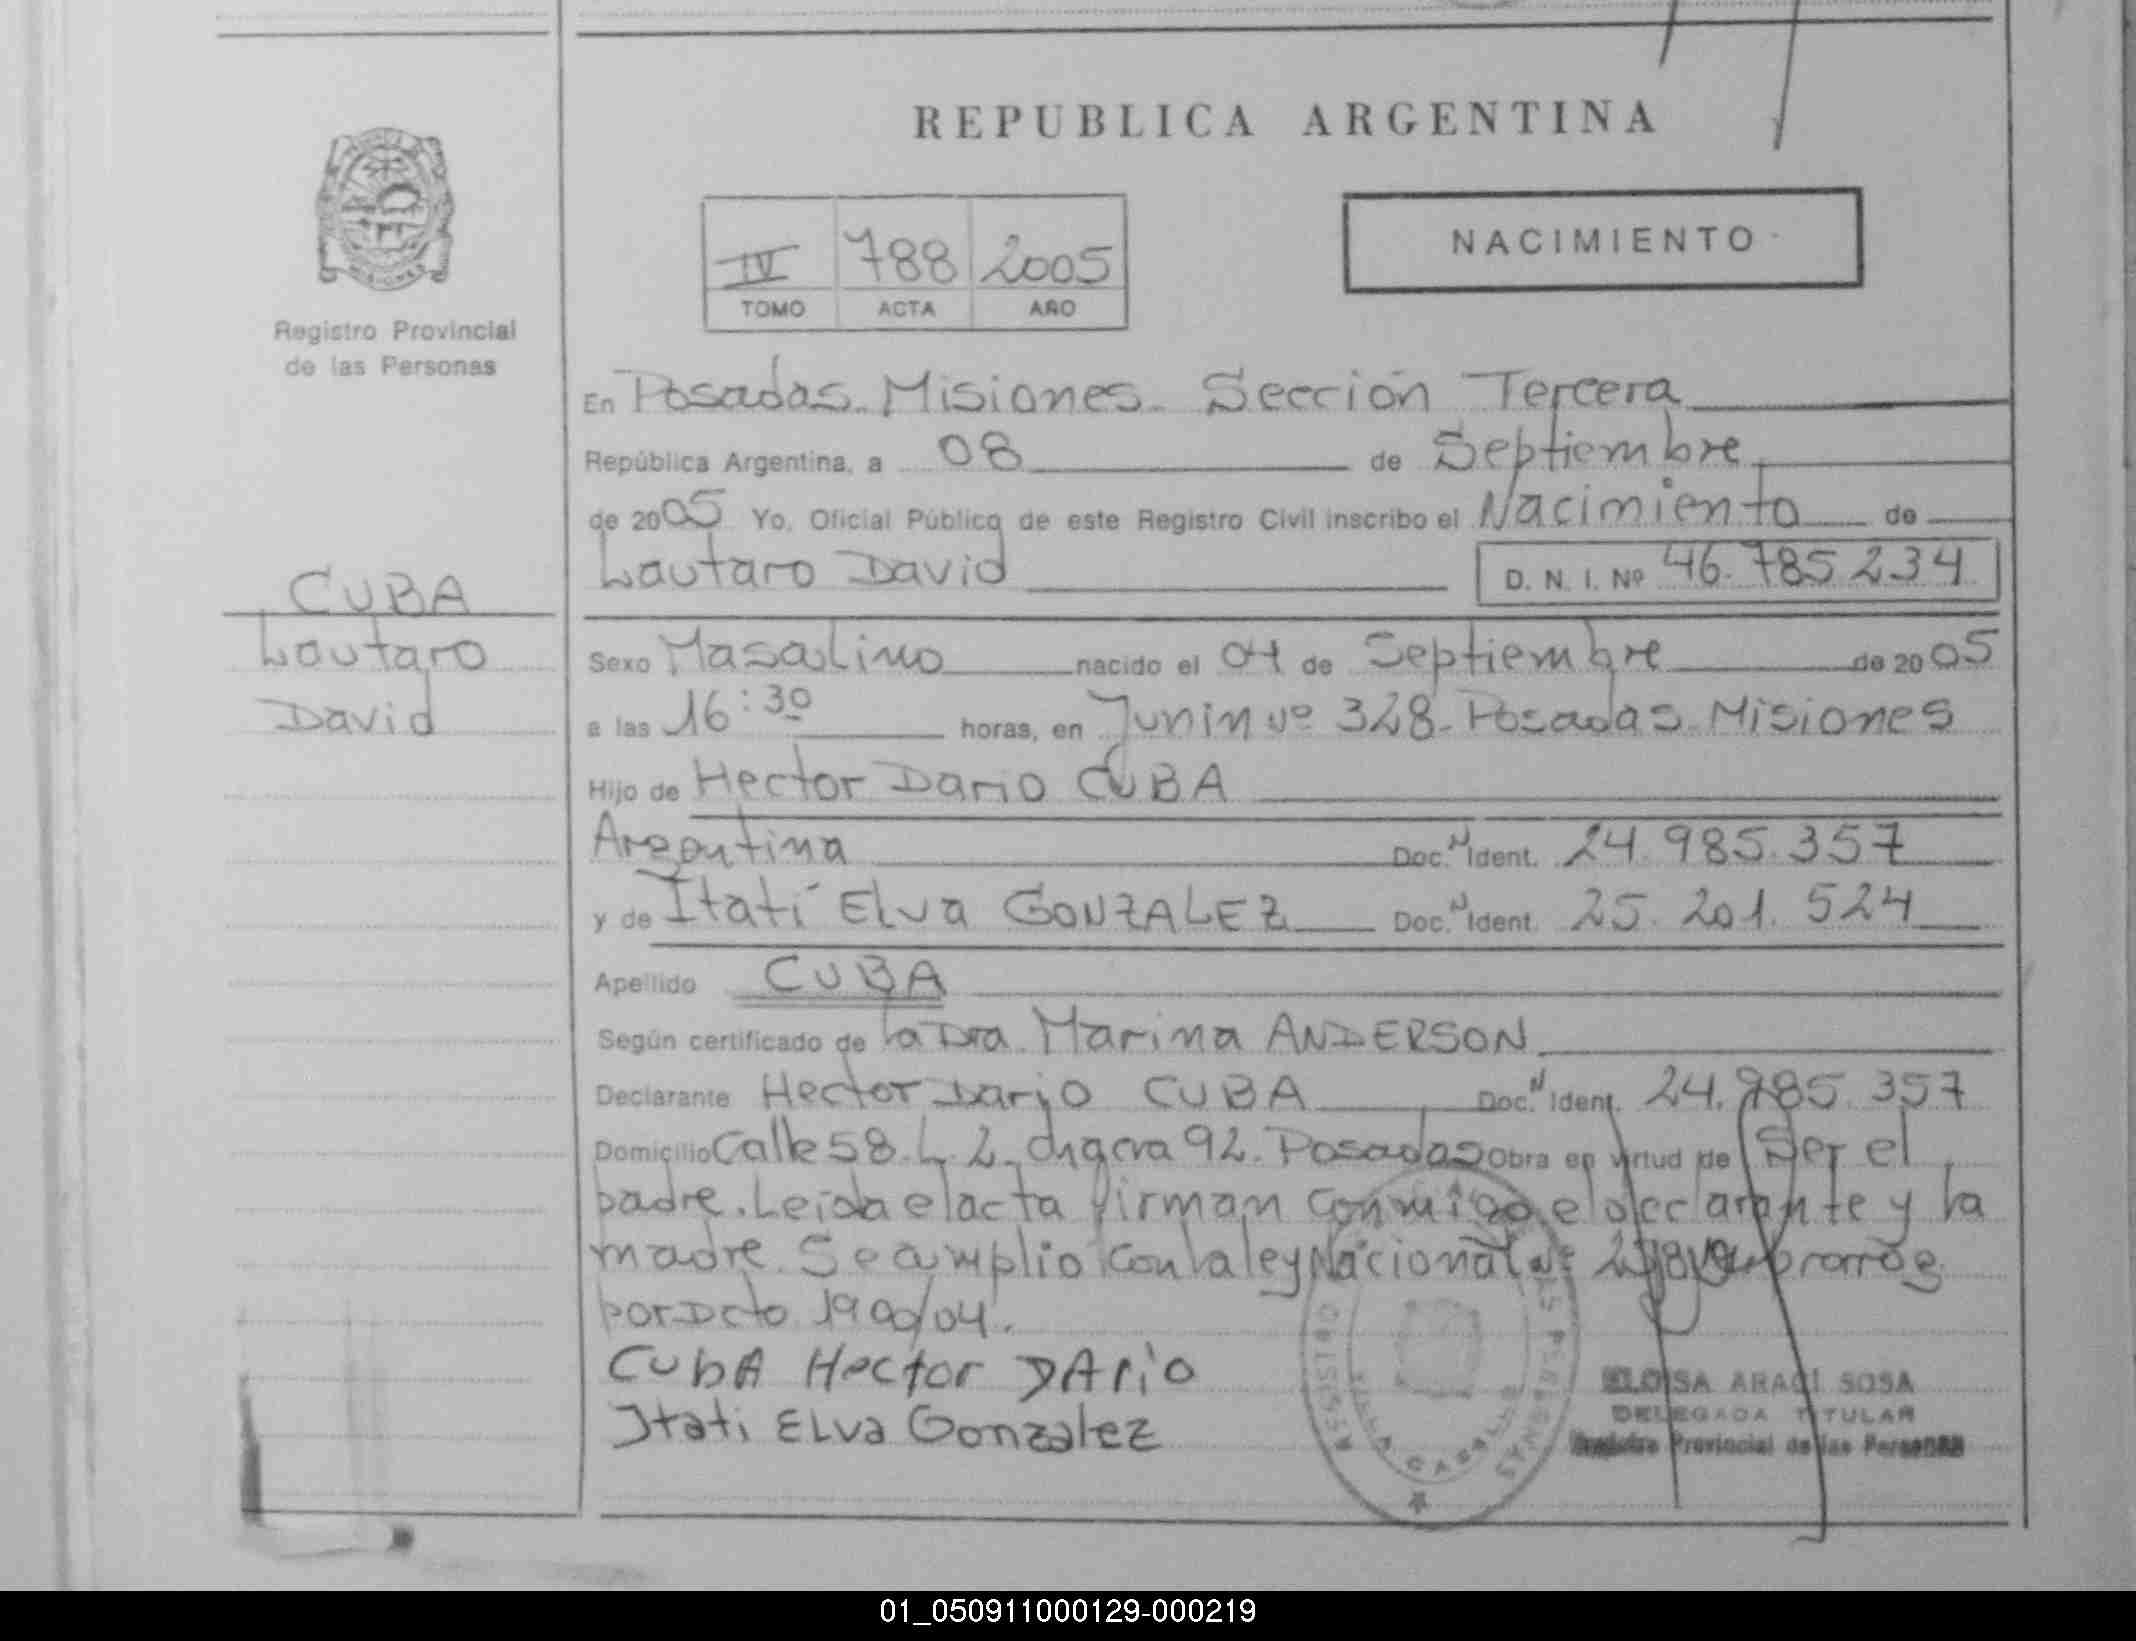 REPUBLICA ARGENTINA
NACIMIENTO
IV 788 2005
TOMO ACTA AÑO
Registro Provincial
de las Personas
CUBA
Lautaro
David
En Posadas. Misiones. Sección Tercera
República Argentina, a 08 de Septiembre
de 2005 Yo, Oficial Público de este Registro Civil inscribo el Nacimiento de
Lautaro David D. N. I. Nº 46.785.234
Sexo Masculino nacido el 04 de Septiembre de 2005
a las 16:30 horas, en Junin Nº 328. Posadas. Misiones
Hijo de Hector Dario CUBA
Argentina Doc. N Ident. 24.985.357
y de Itatí Elva GONZALEZ Doc. N Ident. 25.201.524
Apellido CUBA
Según certificado de la Dra. Marina ANDERSON
Declarante Hector Dario CUBA Doc. N Ident. 24.985.357
Domicilio Calle 58. L. 2. chacra 92. Posadas Obra en virtud de Ser el
padre. Leida el acta firman conmigo el declarante y la
madre. Se cumplio con la ley Nacional Nº
por Dcto 1900/04.
CubA Hector DArio
Itati Elva Gonzalez
ELOISA ARACI SOSA
DELEGADA TITULAR
Registro Provincial de las Personas
01_050911000129-000219